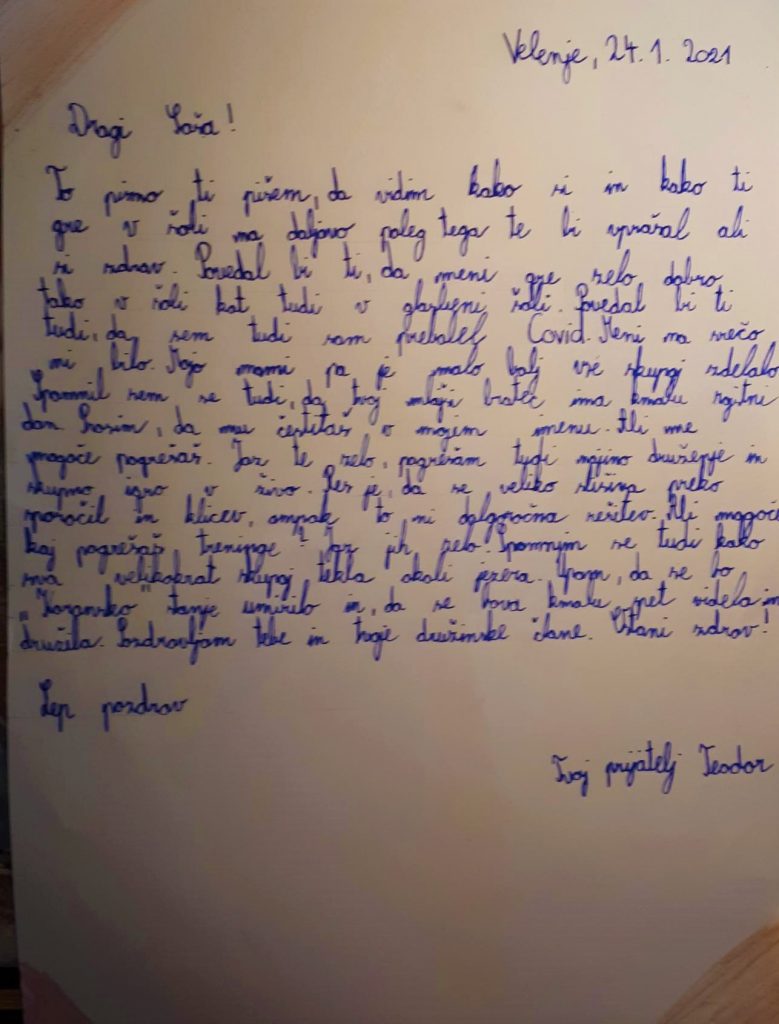 Velenje, 24. 1. 2021
Dragi Saša!
To pismo ti pišem, da vidim kako si in kako ti
gre v šoli na daljavo poleg tega te bi vprašal ali
si zdrav. Povedal bi ti, da meni gre zelo dobro
tako v šoli kot tudi v glazbeni šoli. Povedal bi ti
tudi, da sem tudi sam prebolel Covid. Meni na srečo
ni bilo. Mojo mami pa je malo bolj vse skupaj zdelalo
Spomnil sem se tudi, da tvoj mlajši bratec ima kmalu rojstni
dan. Prosim, da mu čestitaš v mojem imenu. Ali me
mogoče pogrešaš. Jaz te zelo, pogrešam tudi najino druženje in
skupno igro v živo. Res je, da se veliko slišiva preko
sporočil in klicev, ampak to ni dolgoročna rešitev. Ali mogoče
kaj pogrešaš treninge? Jaz jih zelo. Spomnim se tudi kako
sva velikokrat skupaj tekla okoli jezera. Upam, da se bo
„Koronsko“ stanje umirilo in, da se bova kmalu, spet videla in
družila. Pozdravljam tebe in tvoje družinske člane. Ostani zdrav!
Lep pozdrav
Tvoj prijatelj Teodor